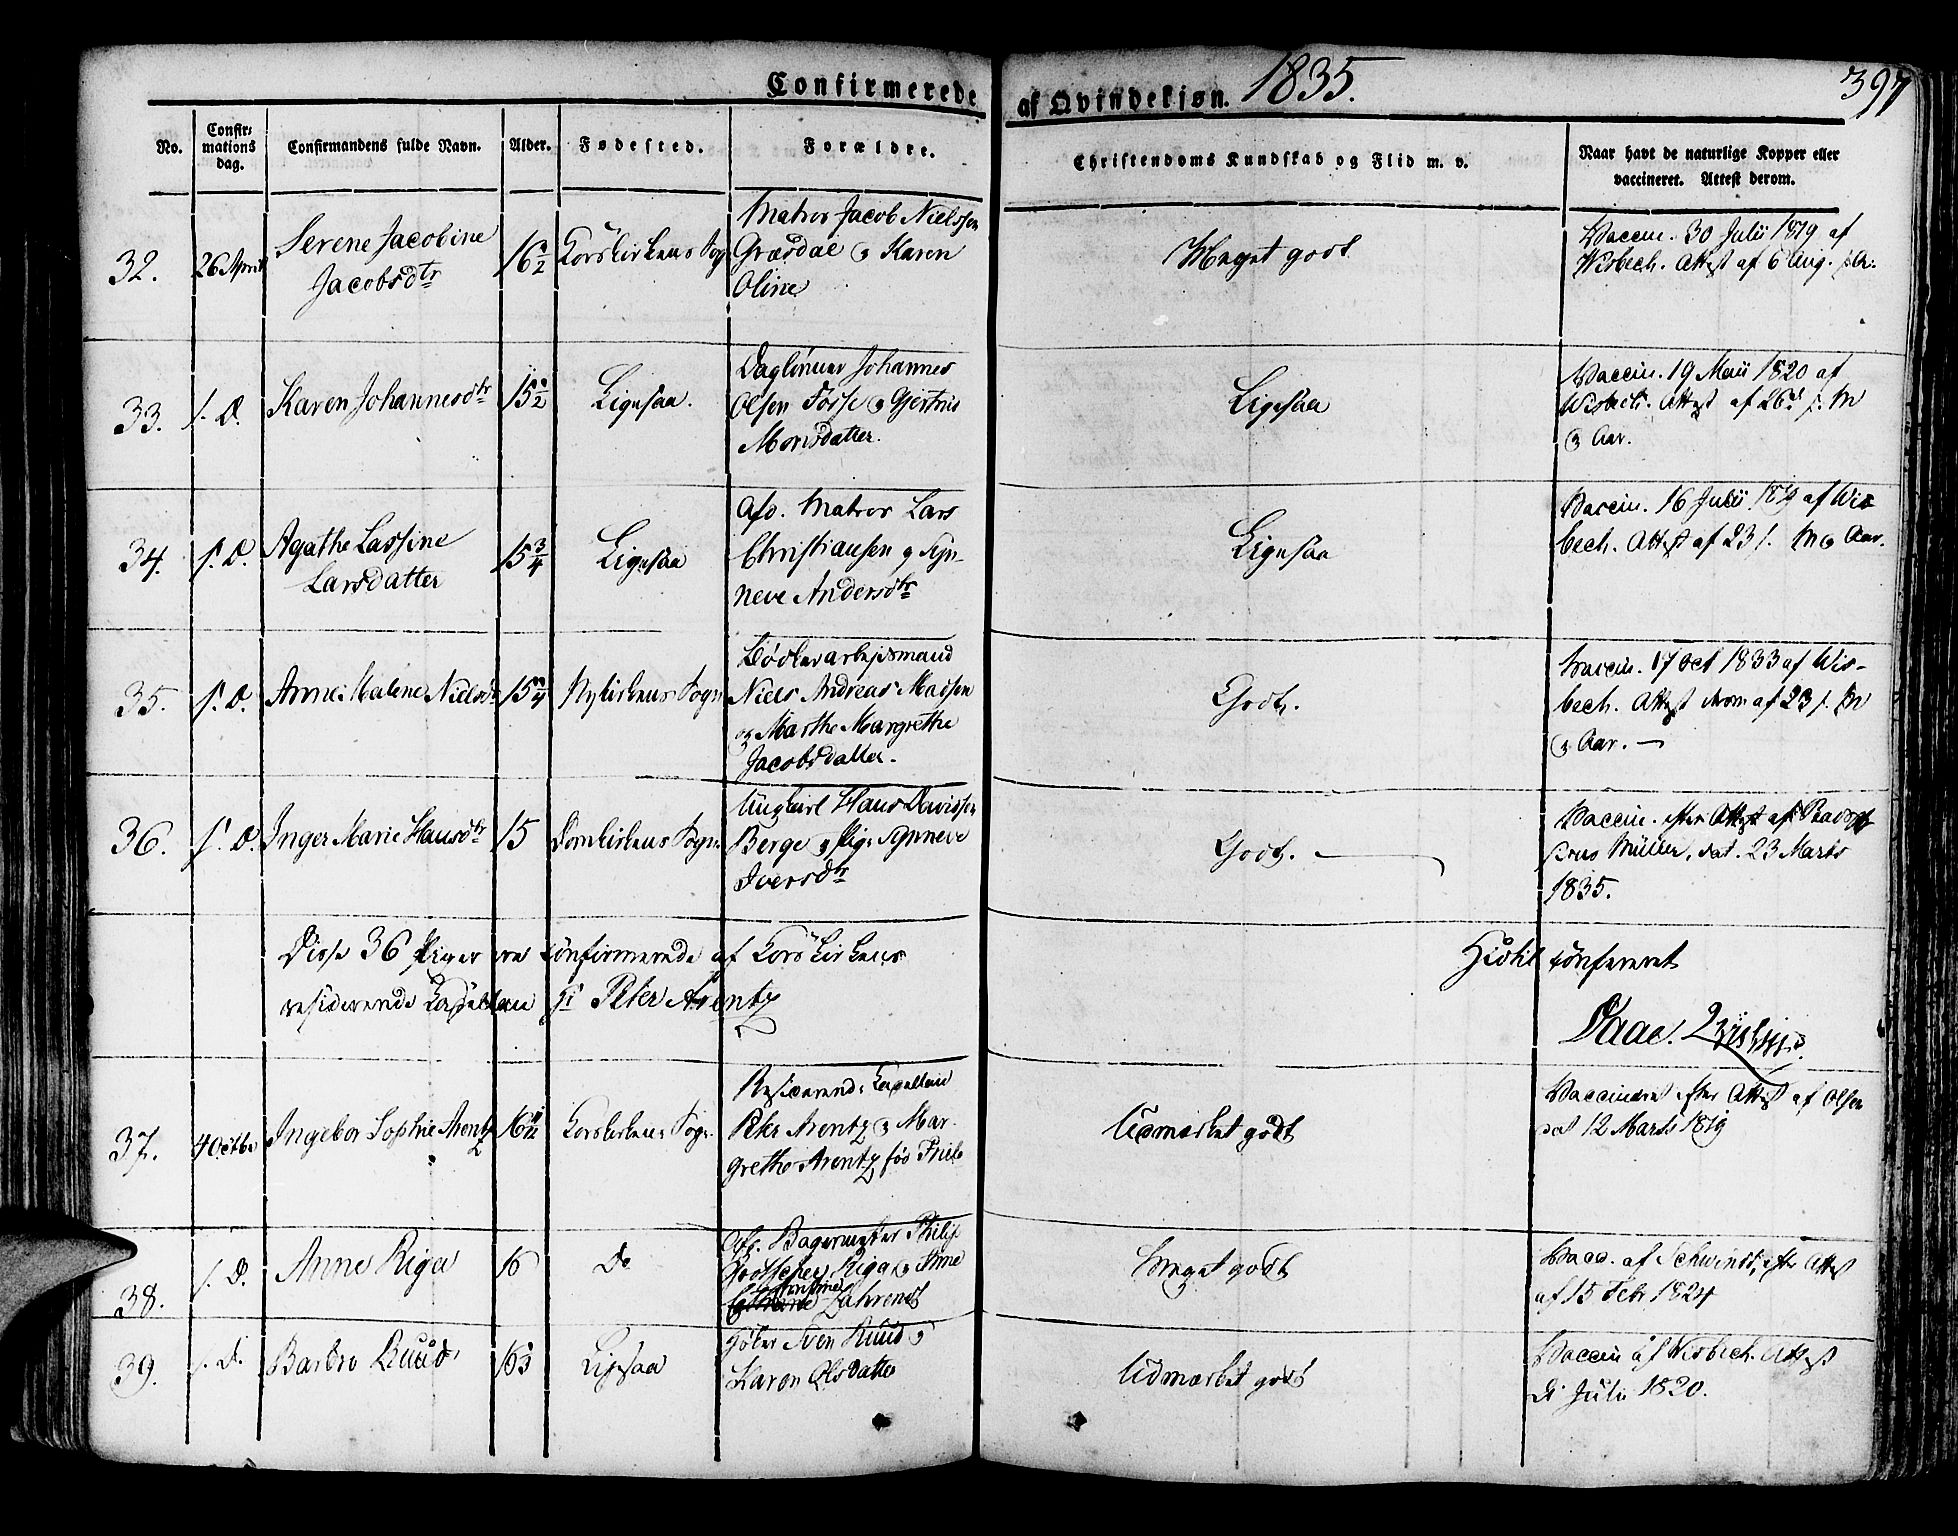 Confirmerede af Qvindekjøn. 1835. 397
No. Confirmations dag. Confirmandens fulde Navn. Alder. Fødested. Forældre. Christendoms Kundskab og Flid m. v. Naar havt de naturlige Kopper eller vaccineret. Attest derom.
32. 26 April Serene Jacobine Jacobsdtr 16 1/2 Korskirkens Sogn
Matros Jacob Nielssen
Græsdal og Karen
Oline
Meget godt
Vaccin. 30 Julii 1819 af
Wisbech. Attest af 6 Aug. s. A.
33. s. D. Karen Johannesdtr 15 1/2 Ligesaa.
Daglönner Johannes
Olsen Fosse og Gjertrud
Monsdatter.
Ligesaa
Vaccin. 19 Maii 1820 af
Wisbech. Attest af 26 s. M
og Aar.
34. s. D. Agathe Lassine
Larsdatter
15 3/4 Ligesaa
Afd. Matros Lars
Christiansen og Syn-
neve Andersdtr
Ligesaa
Vaccin. 16 Julii 1819 af Wis
bech. Attest af 23 s. M og Aar.
35. s. D. Anne Malene Nielsdtr 15 Nykirkens Sogn
Bödkerarbejdsmand
Niels Andreas Madsen
og Marthe Margrethe
Jacobsdatter.
Godt.
Vaccin. 17 Oct 1833 af Wis-
bech. Attest derom af 23 s. M
og Aar. —
36. s. D. Inger Marie Hansdtr 15 Domkirkens Sogn
Ungkarl Hans Davidsen
Berge og Pige Synneve
Iversdtr
Godt. —
Vaccin. efter Attest af
Müller, dat. 23 Marts
1835.
Disse 36 Piger ere confirmerede af Korskirkens
residerende Kapellan Hr Peter Arentz
Hidtil confereret
Daae.
37. 4 Octbr Ingebor Sophie Arentz 16 Korskirkens Sogn
Residerende Kapellan
Peter Arentz og Mar-
grethe Arentz fød Friele
Udmærket godt
Vaccineret efter Attest af Olsen
dat 12 Marts 1819
38. s. D. Anne Riga 16 Do
Afd. Bagermester Philip
Gottscher Riga og Anne
Christine Fahrendt
Meget godt
Vacc. af Schwindt, efter Attest
af 15 Febr 1824
39. s. D. Barbro Ruud 16 Ligesaa
Sven Ruud og
Karen Olsdatter
Udmærket godt
Vaccin af Wisbech. Attest
Julii 1820.